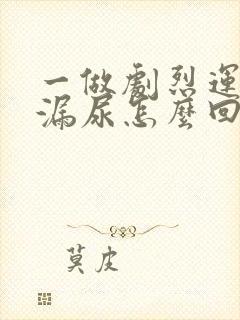 一做劇烈運
漏尿怎麼回
莫皮